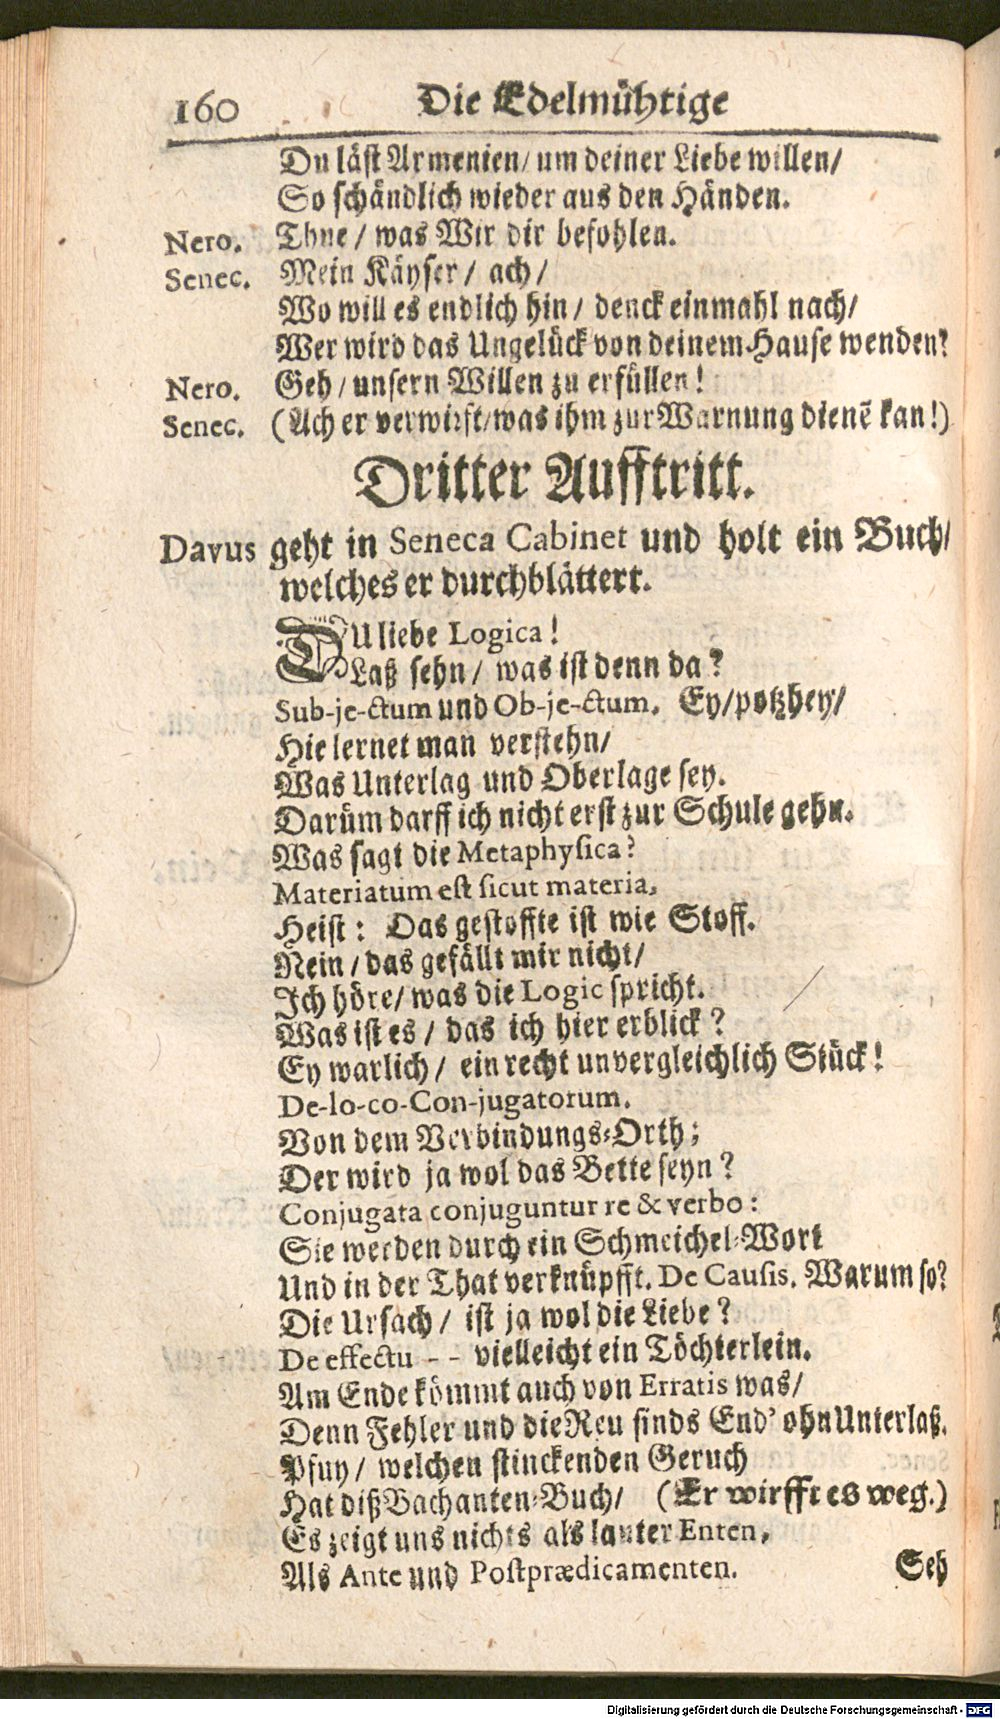 160 Die Edelmühtige
Du läst Armenien/ um deiner Liebe willen/
So schändlich wieder aus den Händen.
Nero. Thue / was Wir dir befohlen.
Senec. Mein Käyser / ach /
Wo will es endlich hin / denck einmahl nach/
Wer wird das Ungelück von deinem Hause wenden?
Nero. Geh / unsern Willen zu erfüllen!
Senec. (Ach er verwirft/ was ihm zur Warnung dienẽ kan!)
Dritter Aufftritt.
Davus geht in Seneca Cabinet und holt ein Buch/
welches er durchblättert.
DU liebe Logica!
Laß sehn / was ist denn da?
Sub-je-ctum und Ob-je-ctum. Ey/potzhey/
Hie lernet man verstehn/
Was Unterlag und Oberlage sey.
Darüm darff ich nicht erst zur Schule gehn.
Was sagt die Metaphysica?
Materiatum est sicut materia,
Heist: Das gestoffte ist wie Stoff.
Nein / das gefällt mir nicht/
Ich höre/ was die Logic spricht.
Was ist es / das ich hier erblick?
Ey warlich / ein recht unvergleichlich Stück!
De-lo-co-Con-jugatorum.
Von dem Verbindungs-Orth;
Der wird ja wol das Bette seyn?
Conjugata conjuguntur re & verbo:
Sie werden durch ein Schmeichel-Wort
Und in der That verknüpfft. De Causis. Warum so?
Die Ursach / ist ja wol die Liebe?
De effectu - - vielleicht ein Töchterlein.
Am Ende kömmt auch von Erratis was/
Denn Fehler und die Reu sinds End' ohn Unterlaß.
Pfuy / welchen stinckenden Geruch
Hat diß Bachanten-Buch/ (Er wirfft es weg.)
Es zeigt uns nichts als lauter Enten,
Als Ante und Postprædicamenten.
Seh
Digitalisierung gefördert durch die Deutsche Forschungsgemeinschaft - DFG